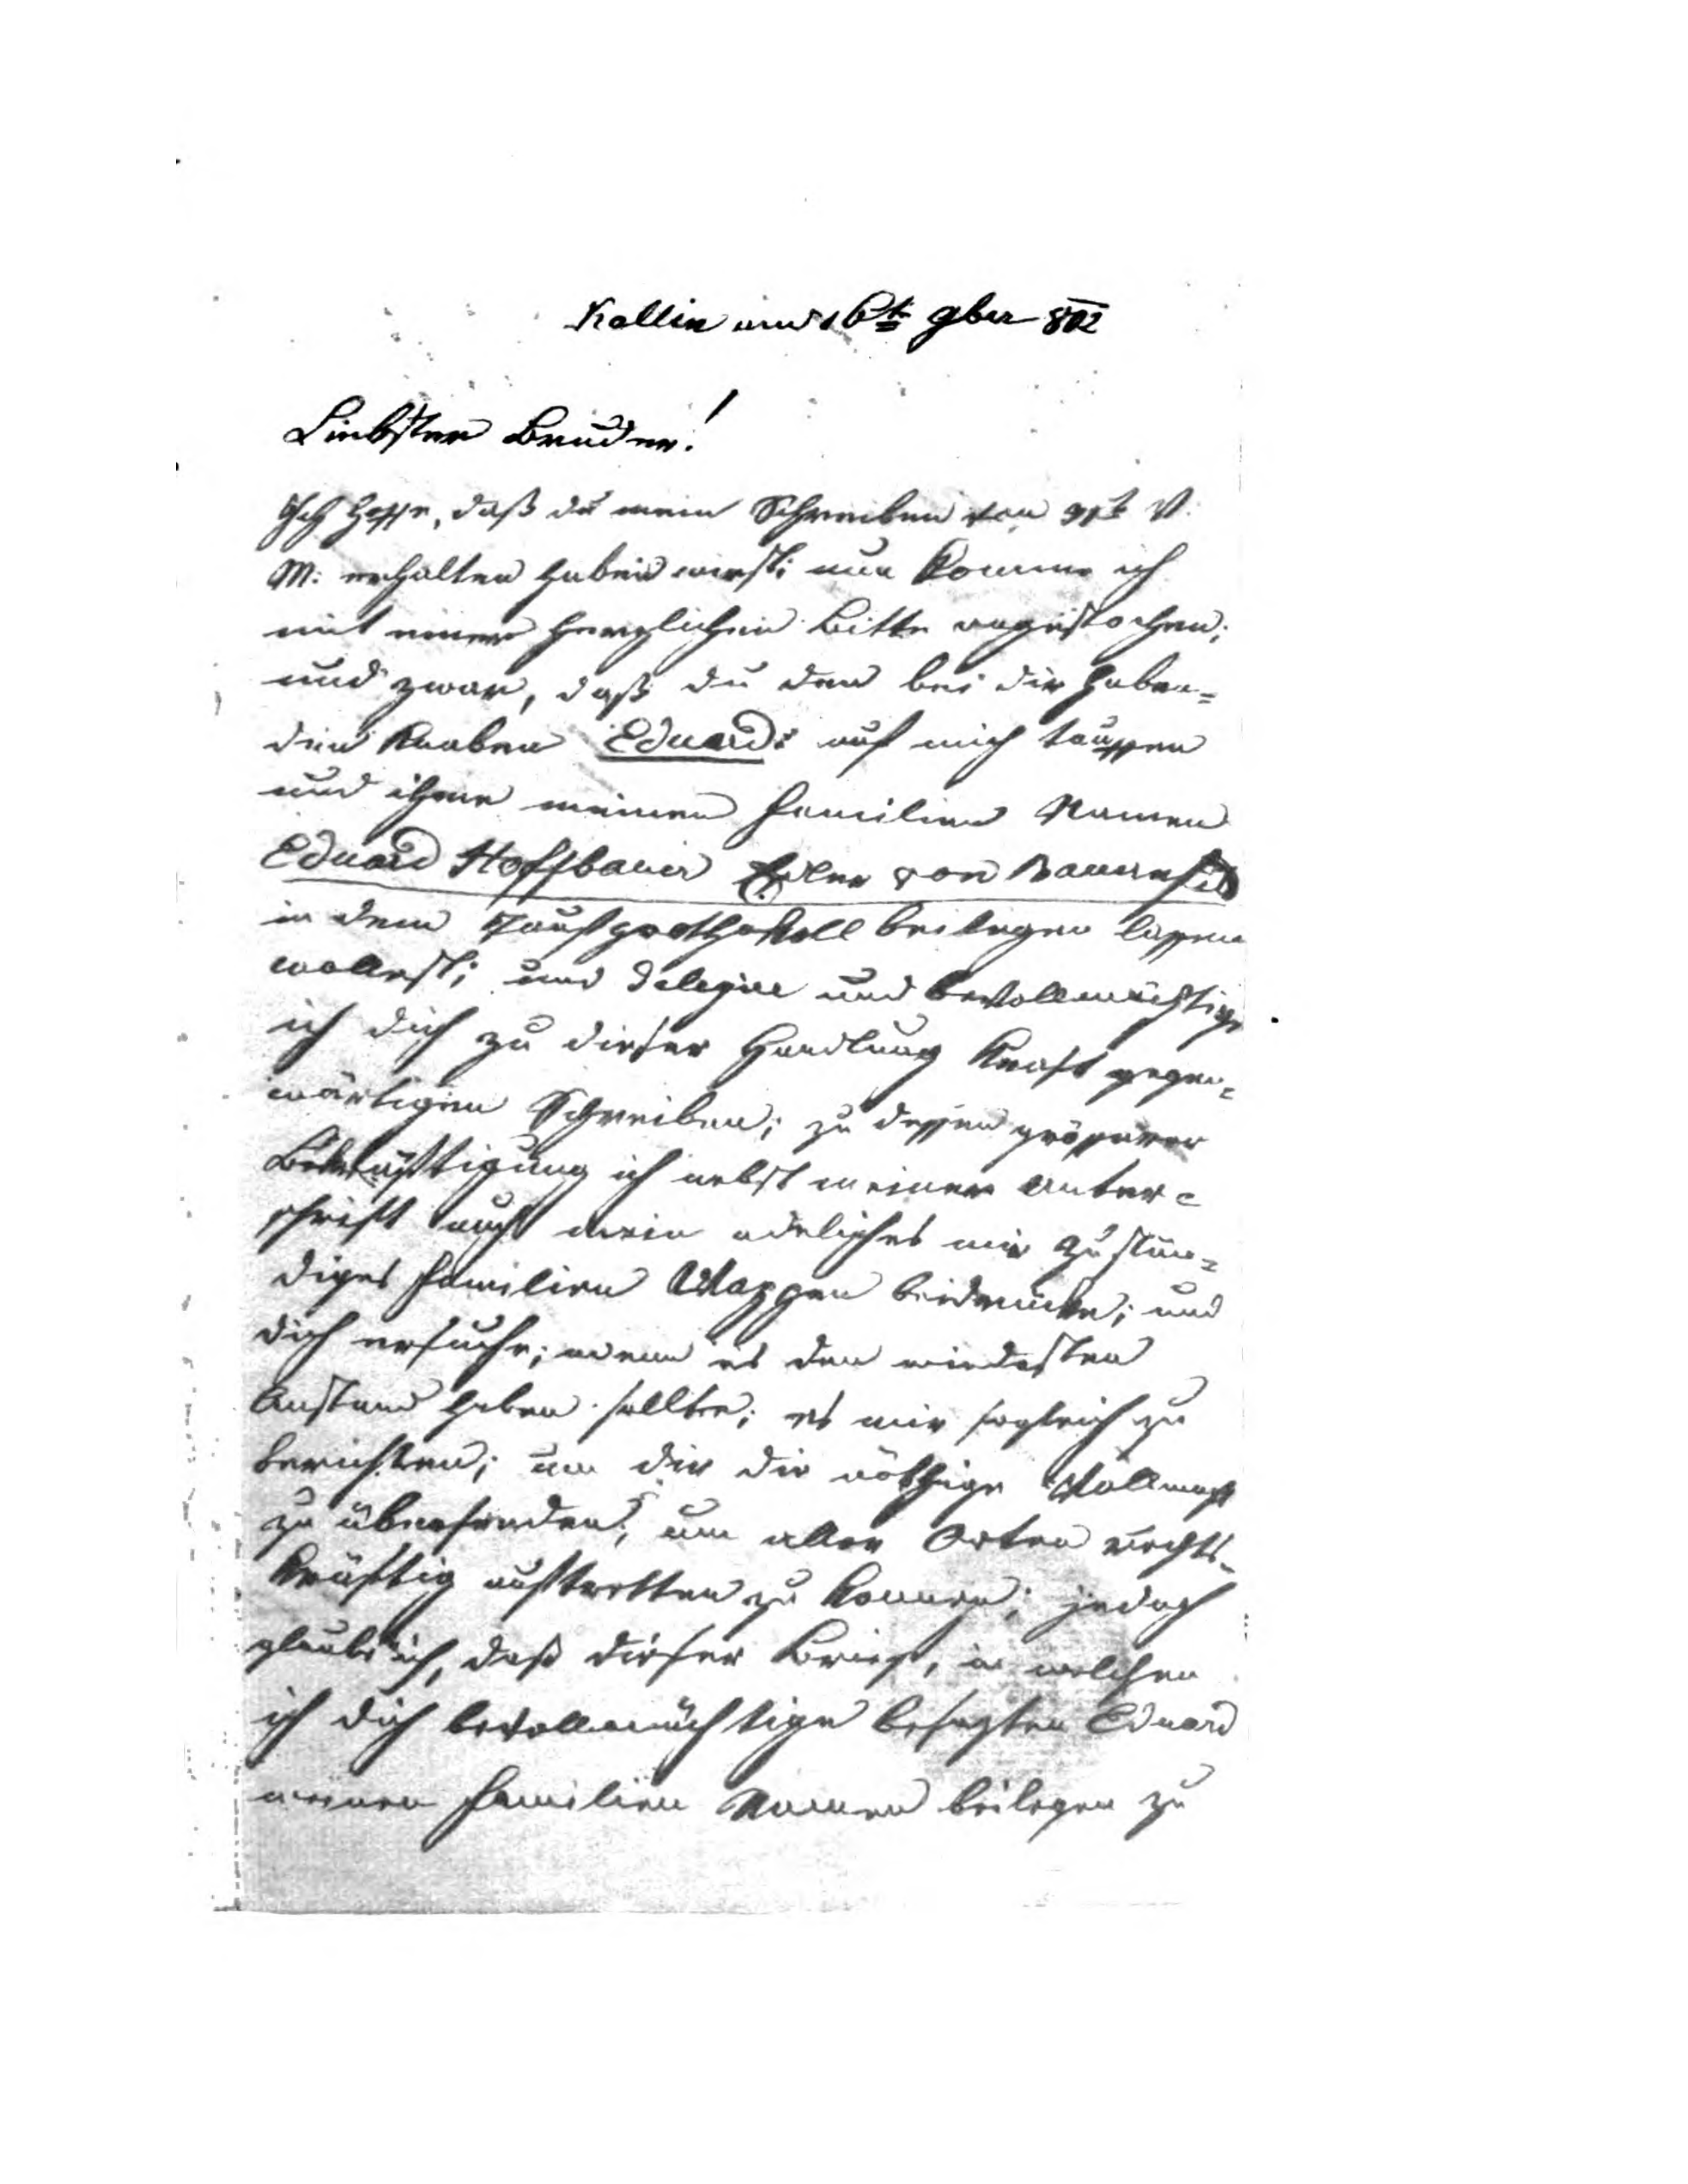 Kollin am 16t 9ber 802
Liebster Bruder!
Ich hoffe, daß du mein Schreiben von V.
M: erhalten haben wirst; nun komme ich
mit einer herzlichen Bitte angestochen;
und zwar, daß du den bei dir haben=
den Knaben Eduard: auf mich tauffen
und ihme meinen Familien Namen
Eduard Hoffbauer Edler von
in dem Taufprothokoll beilegen lassen
wollest; und delegire und bevollmächtige
ich dich zu dieser Handlung kraft gegen=
wärtigen Schreiben; zu dessen grösserer
Bekräftigung ich nebst meiner Unter=
schrift auch mein adeliches mir zustän=
diges Familien Wappen beidrucke; und
dich ersuche; wenn es den mindesten
Anstand haben sollte; es mir sogleich zu
berichten; um dir die nöthige Vollmacht
zu übersenden; um aller Orten rechts=
kräftig auftretten zu konnen; jedoch
glaube ich, daß dieser Brief, in welchen
ich dich bevollmächtige besagten Eduard
meinen Familien Namen beilegen zu